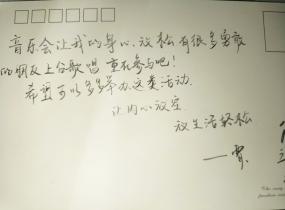 音乐会让我的身心放松有很多勇敢
的朋友上台歌唱 重在参与吧！
希望可以多多举办这类活动.
让内心放空.
放生活轻松
一霄